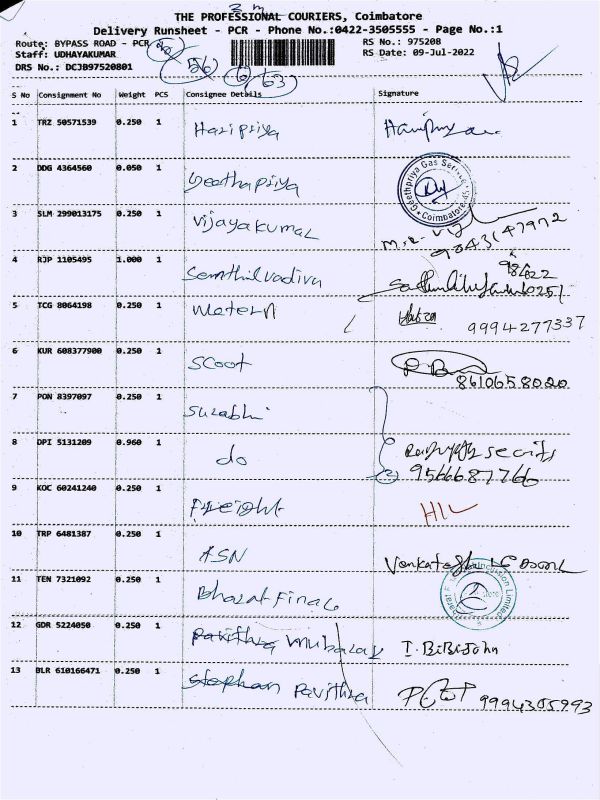 THE PROFESSIONAL COURIERS, Coimbatore
Delivery Runsheet - PCR - Phone No.:0422-3505555 - Page No.:1
Route: BYPASS ROAD - PCR RS No.: 975208
Staff: UDHAYAKUMAR RS Date: 09-Jul-2022
DRS No.: DCJB97520801
S No Consignment No Weight PCS Consignee Details Signature
1 TRZ 50571539 0.250 1 Haripriya
2 DDG 4364560 0.050 1 Geethapriya Geethpriya Gas Service Coimbatore
3 SLM 299013175 0.250 1 Vijayakumar 9843147972
4 RJP 1105495 1.000 1 Senthilvadivu
5 TCG 8064198 0.250 1 9994277337
6 KUR 608377900 0.250 1 Scoot 8610658020
7 PON 8397097 0.250 1 Surabhi
8 DPI 5131209 0.960 1 do 9566687766
9 KOC 60241240 0.250 1 Freight HIL
10 TRP 6481387 0.250 1 ASN
11 TEN 7321092 0.250 1 Bharat Finac
12 GDR 5224050 0.250 1 Pavithra Mubarak I. BiBiJohn
13 BLR 610166471 0.250 1 Stephan Pavithra 9994305993